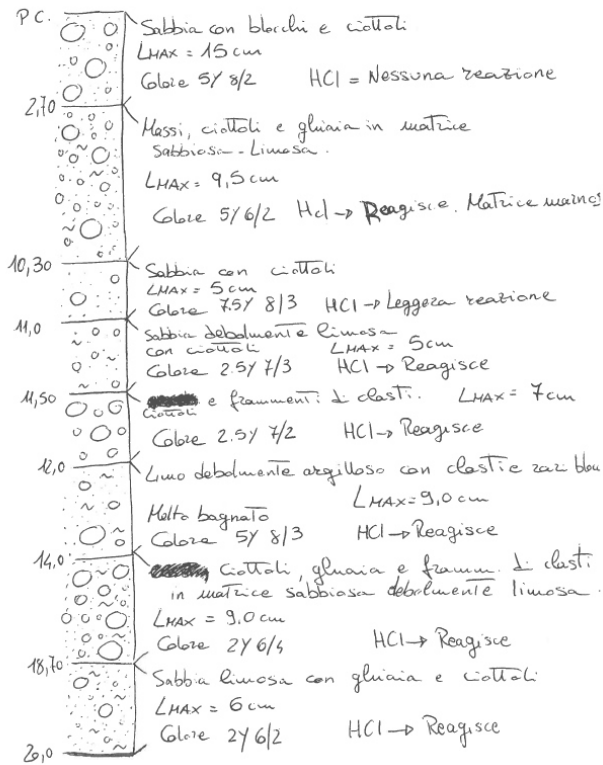 P.C.
Sabbia con blocchi e ciottoli
LMAX = 15 cm
Colore 5Y 8/2 HCl = Nessuna reazione
2,70
Massi, ciottoli e ghiaia in matrice
Sabbiosa-Limosa.
LMAX = 9,5 cm
Colore 5Y 6/2 Hcl → Reagisce. Matrice
10,30
Sabbia con ciottoli
LMAX = 5 cm
Colore 7.5Y 8/3 HCl → Leggera reazione
11,0
Sabbia debolmente limosa
con ciottoli LMAX = 5cm
Colore 2.5Y 7/3 HCl → Reagisce
11,50
Ciottoli e frammenti di clasti. LMAX = 7cm
Colore 2.5Y 7/2 HCl → Reagisce
12,0
Limo debolmente argilloso con clasti e rari
LMAX = 9,0 cm
Molto bagnato
Colore 5Y 8/3 HCl → Reagisce
14,0
Ciottoli, ghiaia e framm. di clasti
in matrice sabbiosa debolmente limosa.
LMAX = 9,0 cm
Colore 2Y 6/4 HCl → Reagisce
18,70
Sabbia limosa con ghiaia e ciottoli
LMAX = 6 cm
Colore 2Y 6/2 HCl → Reagisce
20,0